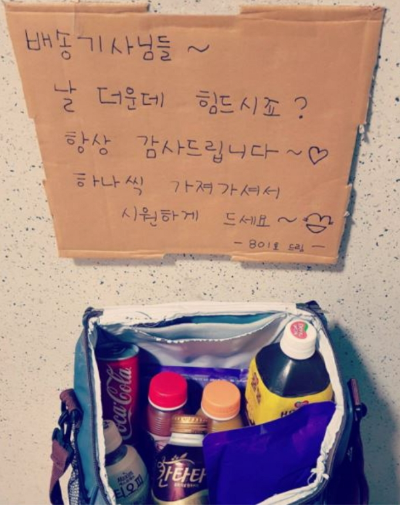 배송기사님들 ~
날 더운데 힘드시죠?
항상 감사드립니다~♡
하나씩 가져가셔서
시원하게 드세요~
- 801호 드림 -
Coca-Cola
칸타타
티오피